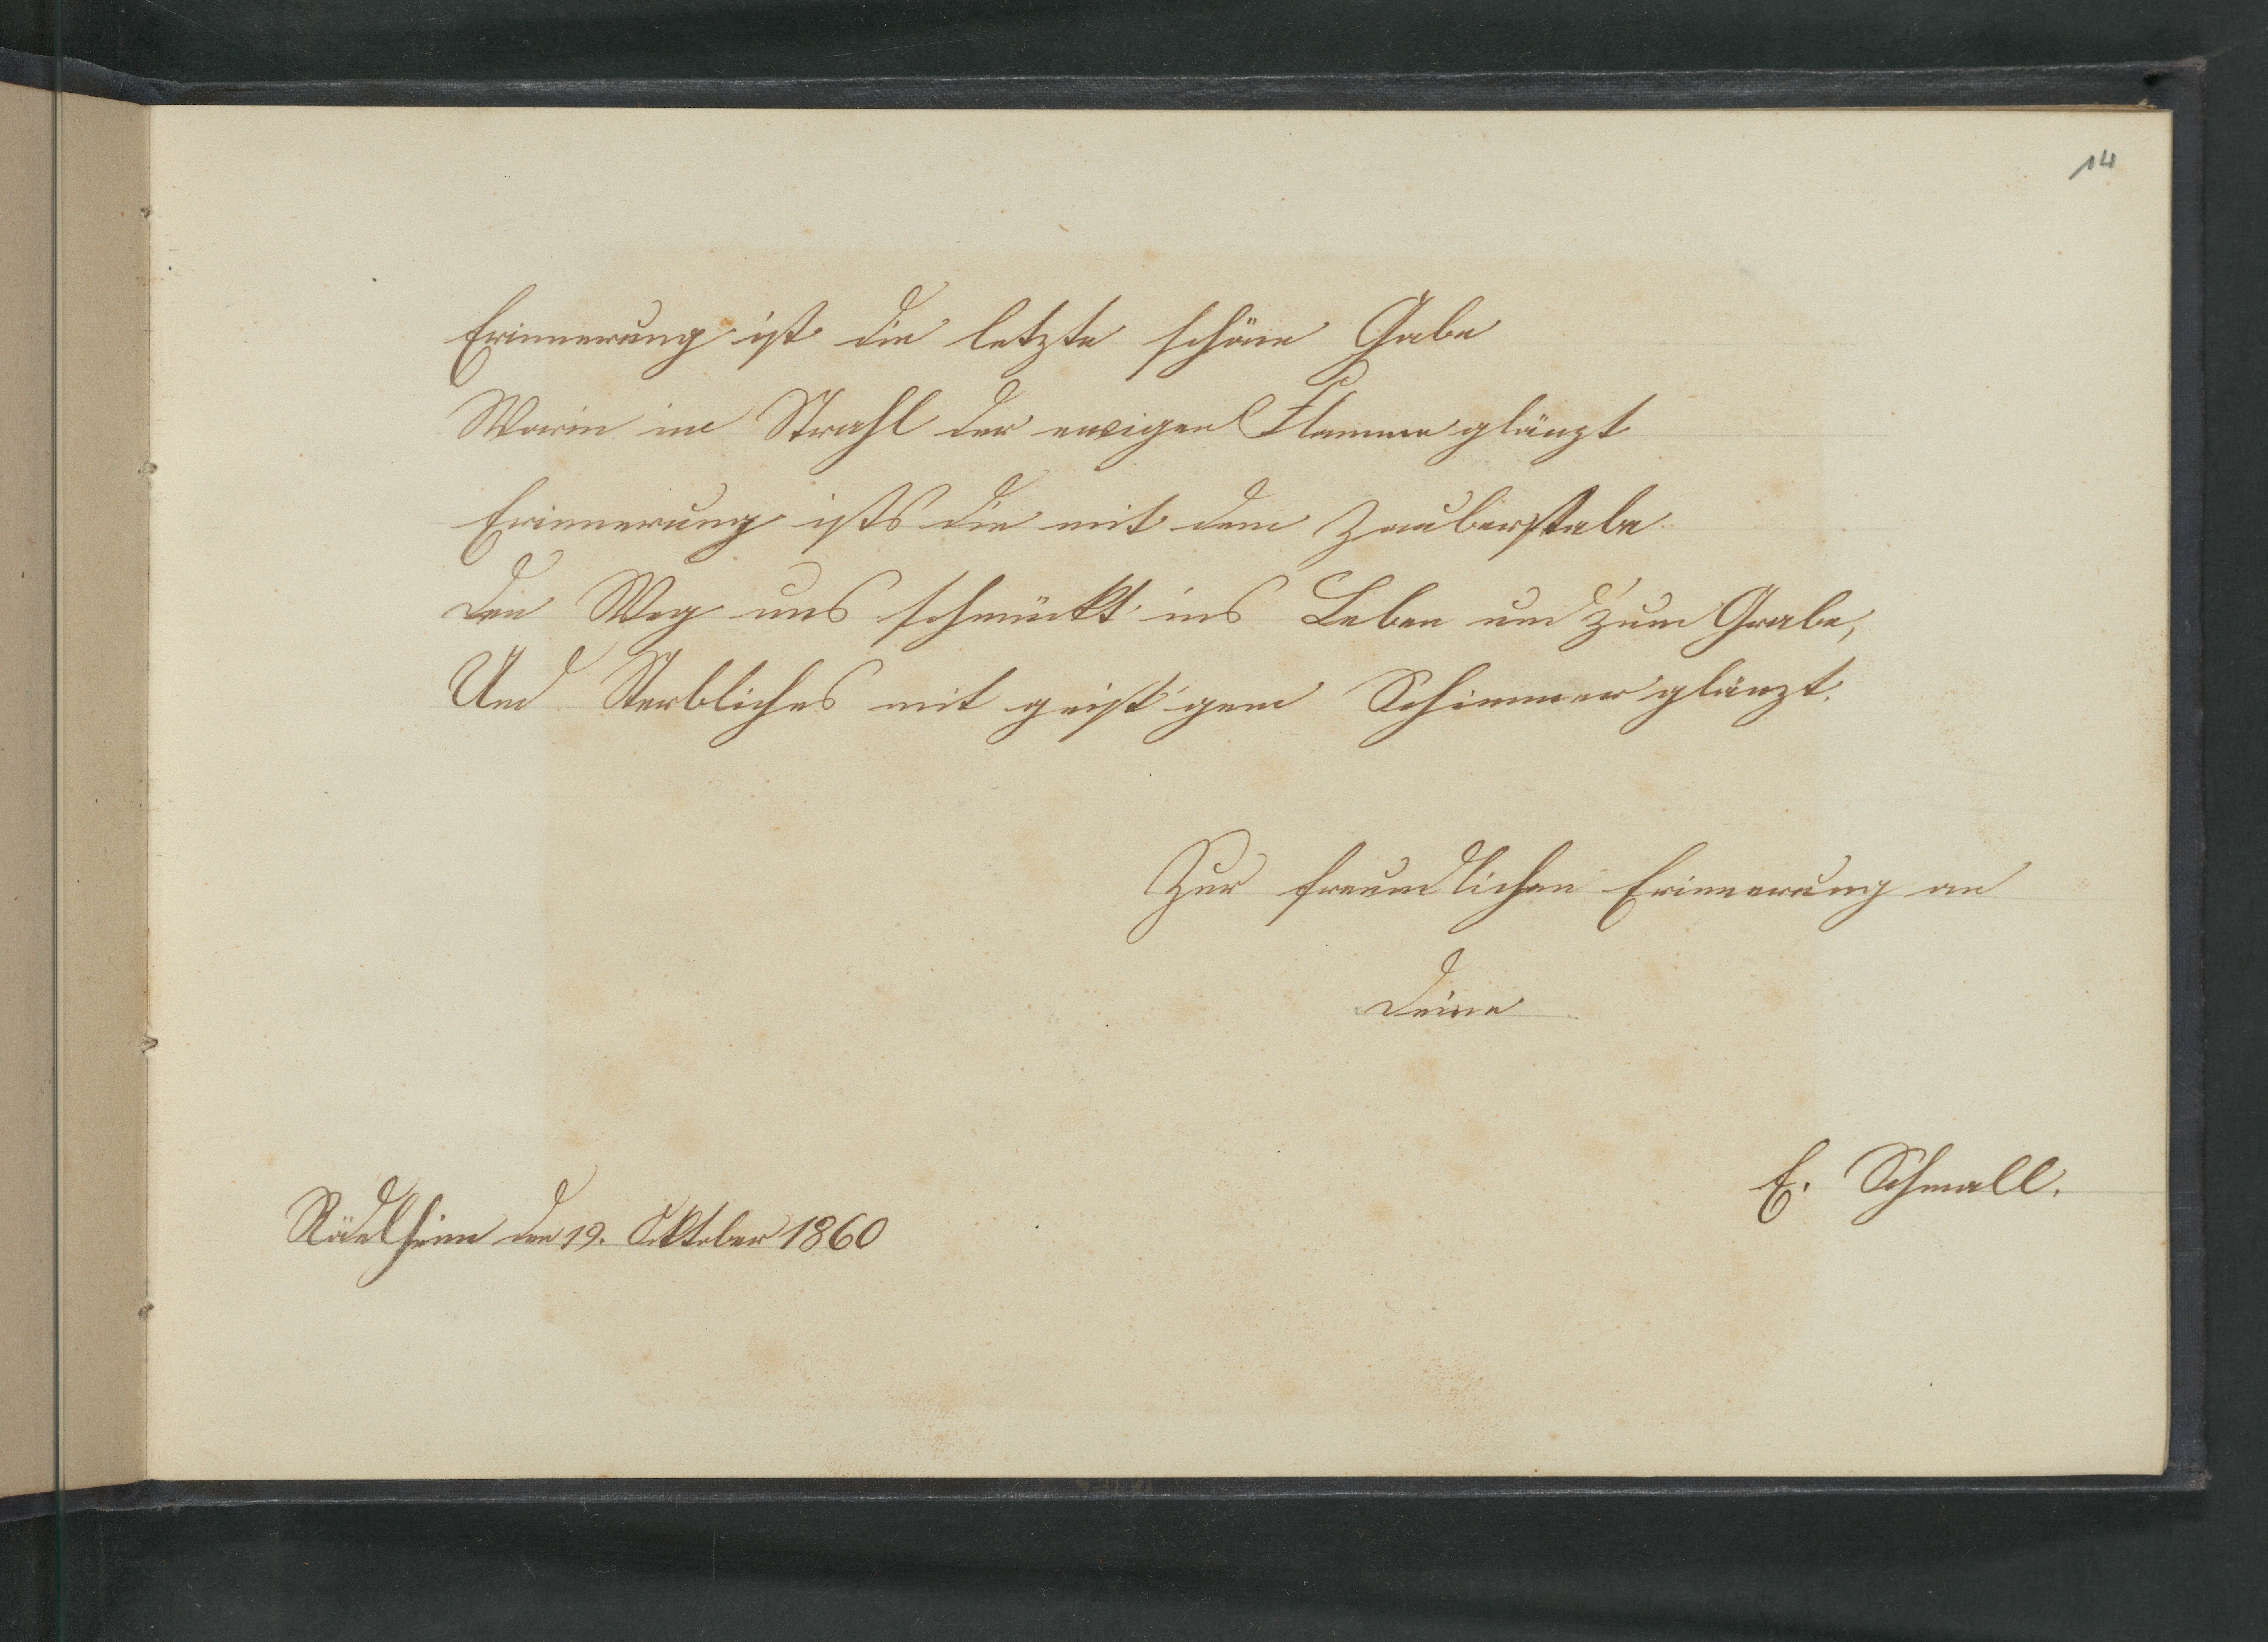 14
Erinnerung ist die letzte schöne Gabe
Worin im Strahl der ewigen Flamme glänzt
Erinnerung ists die mit dem Zauberstabe
Den Weg uns schmückt ins Leben und zum Grabe,
Und Sterbliches mit geist'gem Schimmer glänzt.
Zur freundlichen Erinnerung an
Deine
E. Schmall.
Rödelheim den 19. Oktober 1860